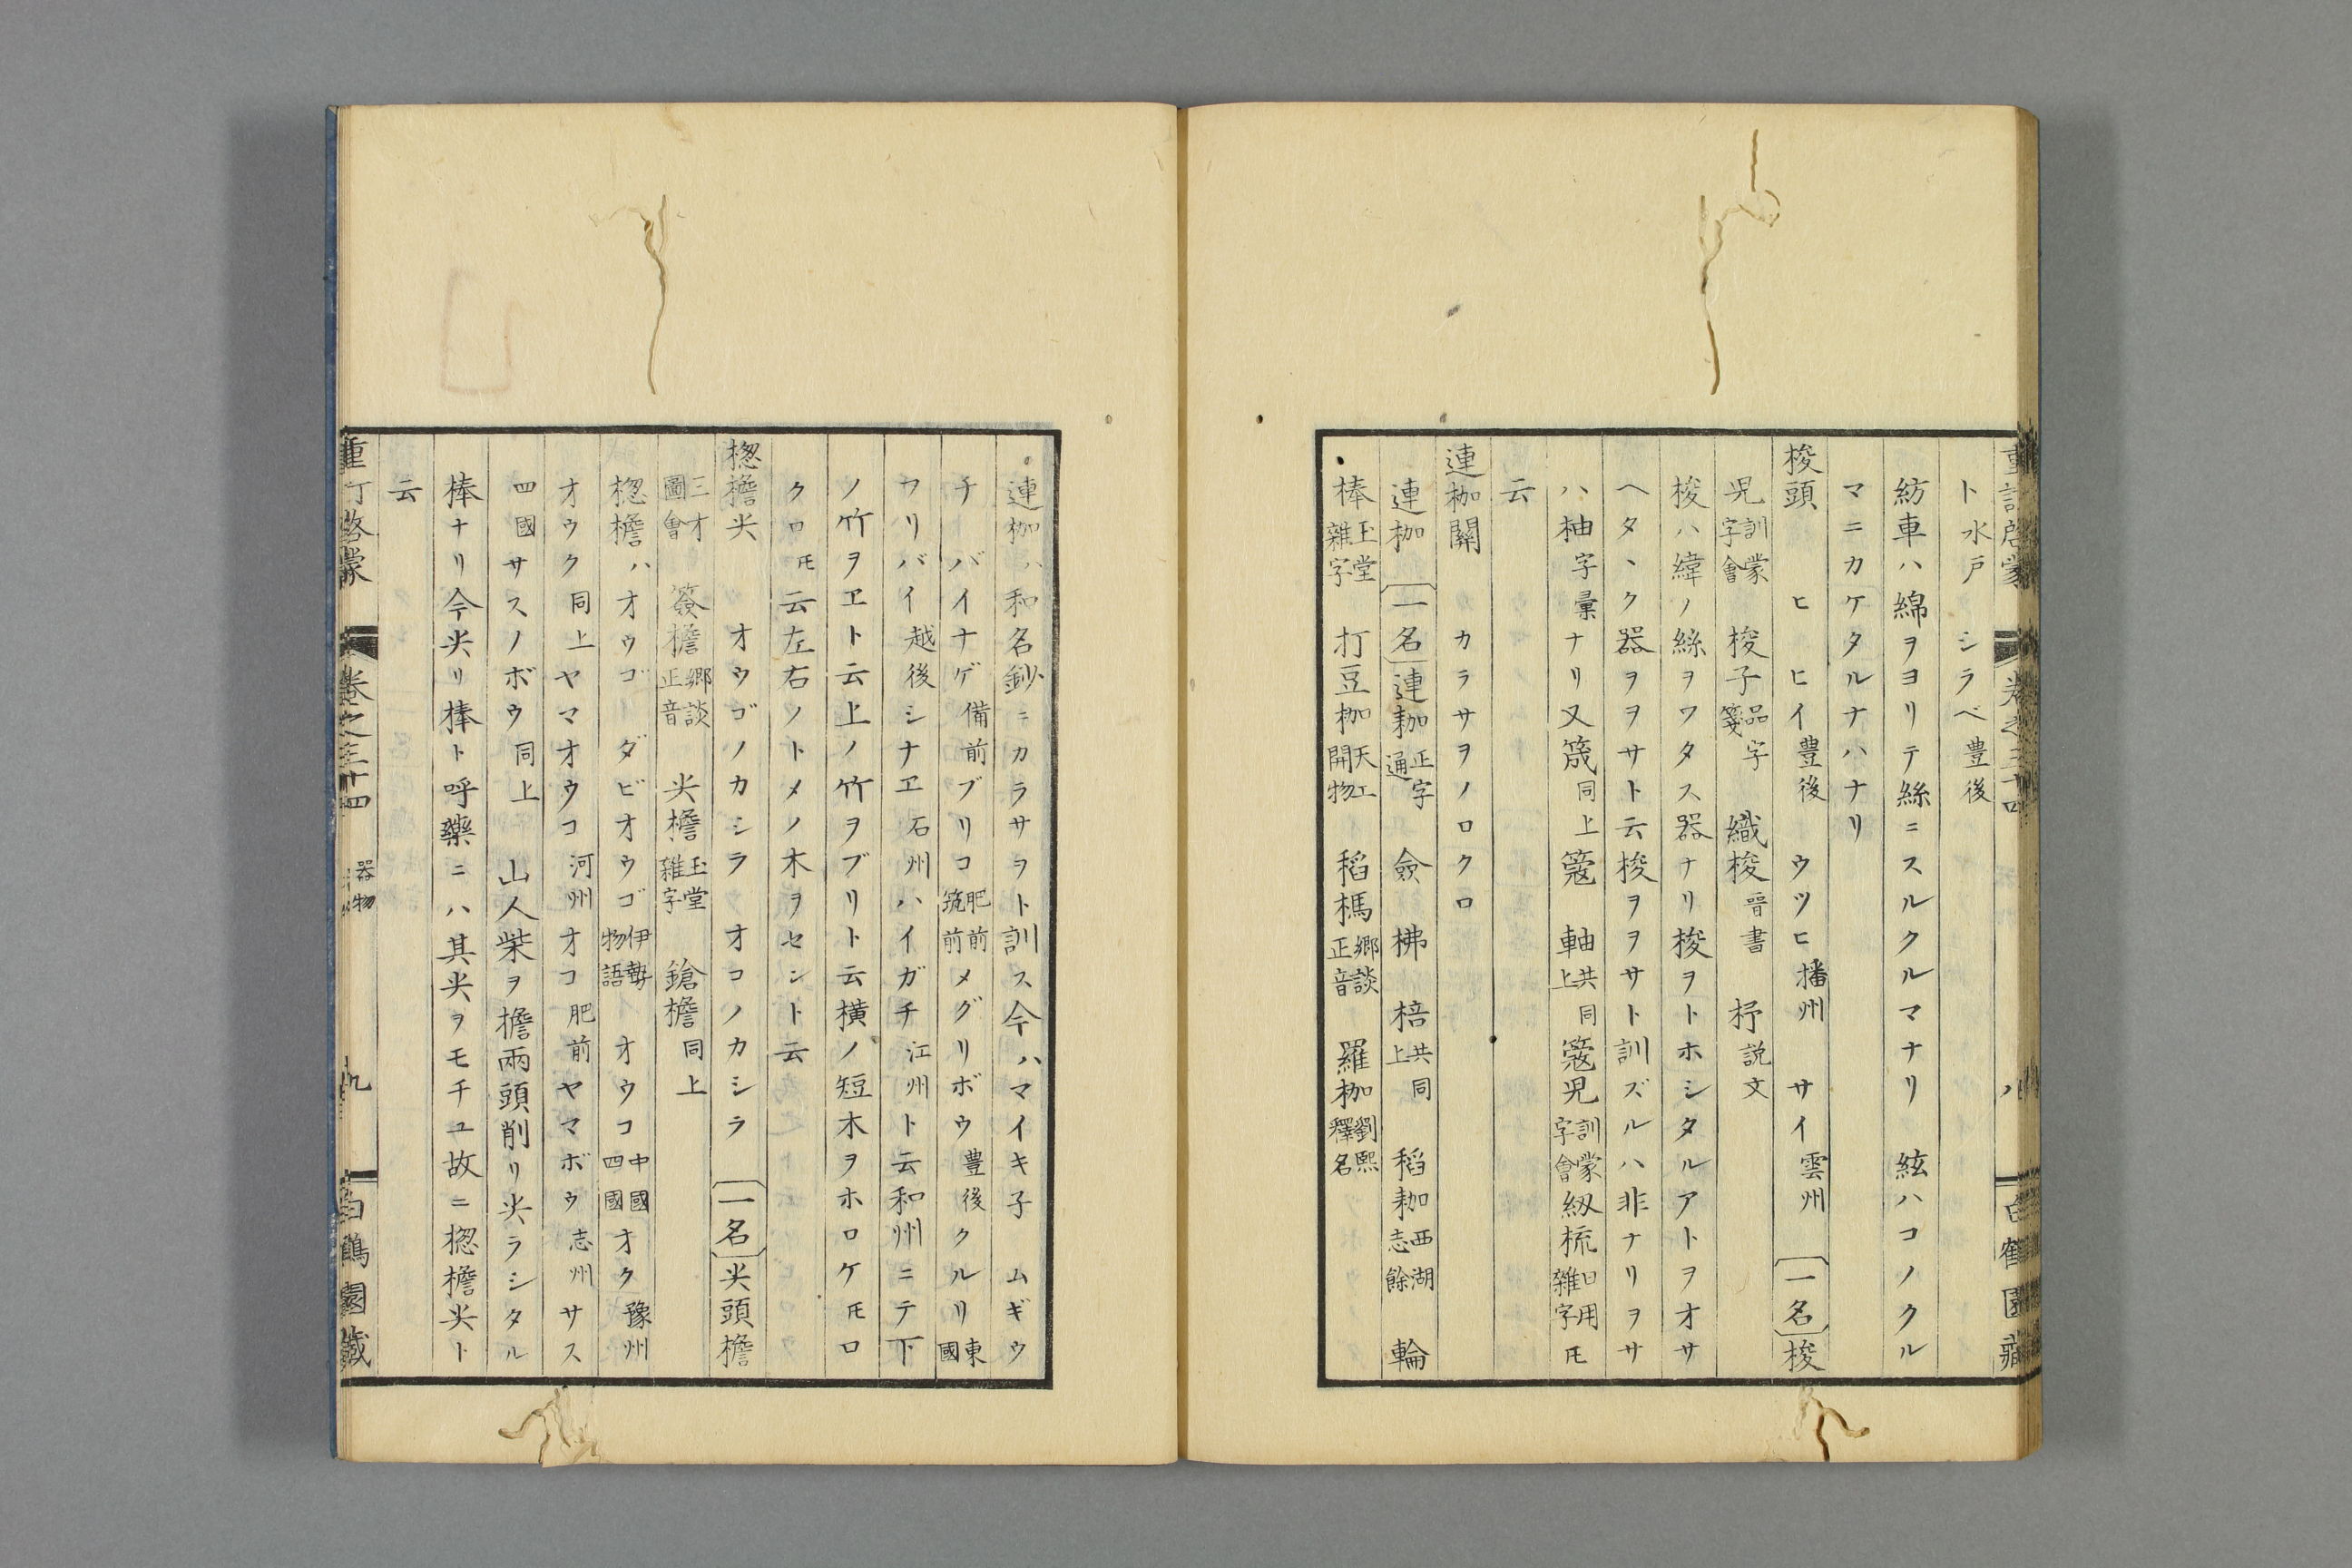 ト水戸　シラベ豊後
紡車ハ綿ヲヨリテ絲ニスルクルマナリ　絃ハコノクル
マニカケタルナハナリ
梭頭　ヒ　ヒイ豊後　ウツヒ播州　サイ雲州　一名 梭
児訓蒙字會　梭子品字箋　織梭晉書　杼説文
梭ハ緯ノ絲ヲワタス器ナリ梭ヲトホシタルアトヲオサ
ヘタヽク器ヲヲサト云梭ヲヲサト訓ズルハ非ナリヲサ
ハ柚字彙ナリ又筬同上　簆　軸共同上　簆児訓蒙字會　級梳日用雜字 𪜈
云
連枷關　カラサヲノロク
連枷　一名 連耞正字通　僉　柫　棓共同上　稻耞西湖志餘　輪
棒玉堂雜字　打豆枷天工開物　稻榪郷談正音　羅枷劉熙釋名
連枷ハ和名鈔ニカラサヲト訓ス今ハマイキ子　ムギウ
チ　バイナゲ備前　ブリコ肥前筑前　メグリボウ豊後　クルリ東國
カリバイ越後　シナヱ石州　ハイガチ江州ト云和州ニテ下
ノ竹ヲヱト云上ノ竹ヲブリト云横ノ短木ヲホロケ𪜈ロ
クロ𪜈云左右ノトメノ木ヲセント云
楤檐尖　オウゴノカシラ　オコノカシラ　一名 尖頭檐
三才圖會　簽檐郷談正音　尖檐玉堂雜字　鎗檐同上
楤檐ハオウゴ　ダビオウゴ伊勢物語　オウコ中國四國　オク豫州
オウク同上　ヤマオウコ河州　オコ肥前　ヤマボウ志州　サス
四國　サスノボウ同上　山人柴ヲ檐兩頭削リ尖ラシタル
棒ナリ今尖リ棒ト呼藥ニハ其尖ヲモチユ故ニ楤檐尖ト
云
重訂啓蒙　卷之三十四　器物　九　白鶴園藏